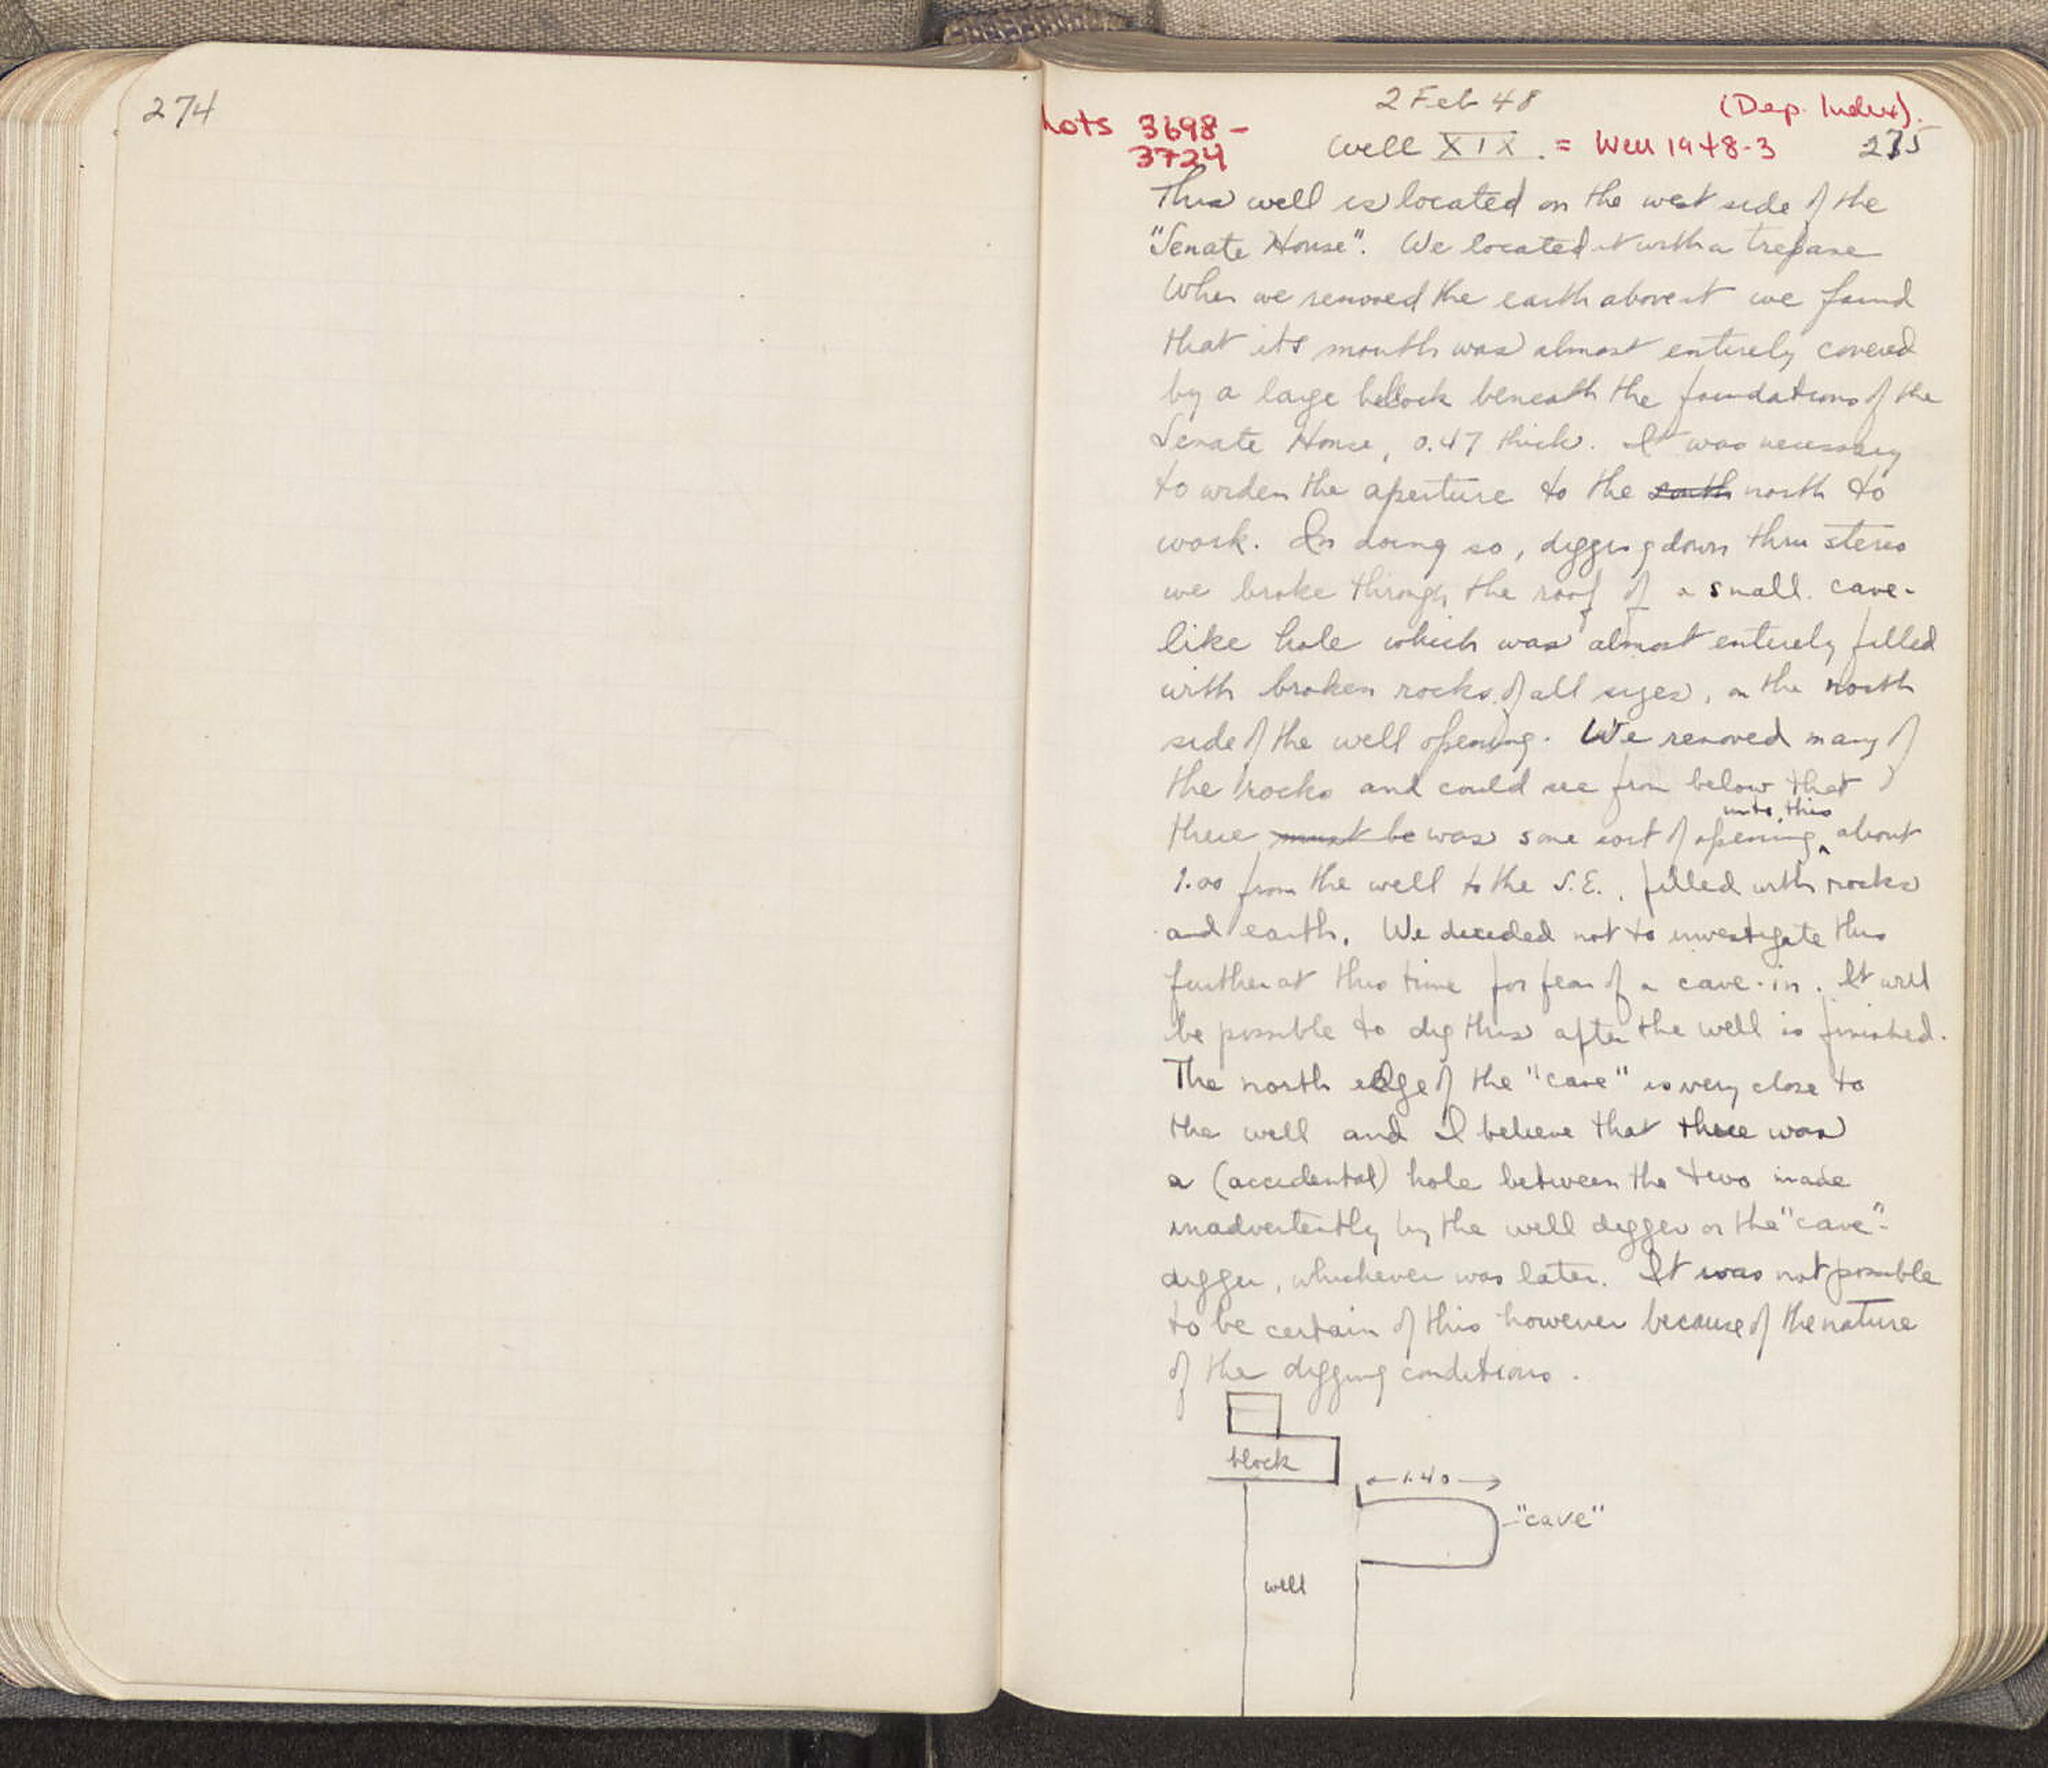 274
2 Feb 48
(Dep. Index).
Lots 3698 -
3724
Well XIX. = Well 1948-3
275
This well is located on the west side of the
"Senate House". We located it with a trepane
When we removed the earth above it we found
that its mouth was almost entirely covered
by a large block beneath the foundations of the
Senate House, 0.47 thick. It was necessary
to widen the aperture to the south north to
work. In doing so, digging down thru stereo
we broke through the roof of a small cave-
like hole which was almost entirely filled
with broken rocks of all sizes, on the north
side of the well opening. We removed many of
the rocks and could see from below that
there must be was some sort of opening into this about
1.00 from the well to the S.E., filled with rocks
and earth. We decided not to investigate this
further at this time for fear of a cave-in. It will
be possible to dig this after the well is finished.
The north edge of the "cave" is very close to
the well and I believe that there was
a (accidental) hole between the two made
inadvertently by the well digger or the "cave"-
digger, whichever was later. It was not possible
to be certain of this however because of the nature
of the digging conditions.
block
1.40
"cave"
well